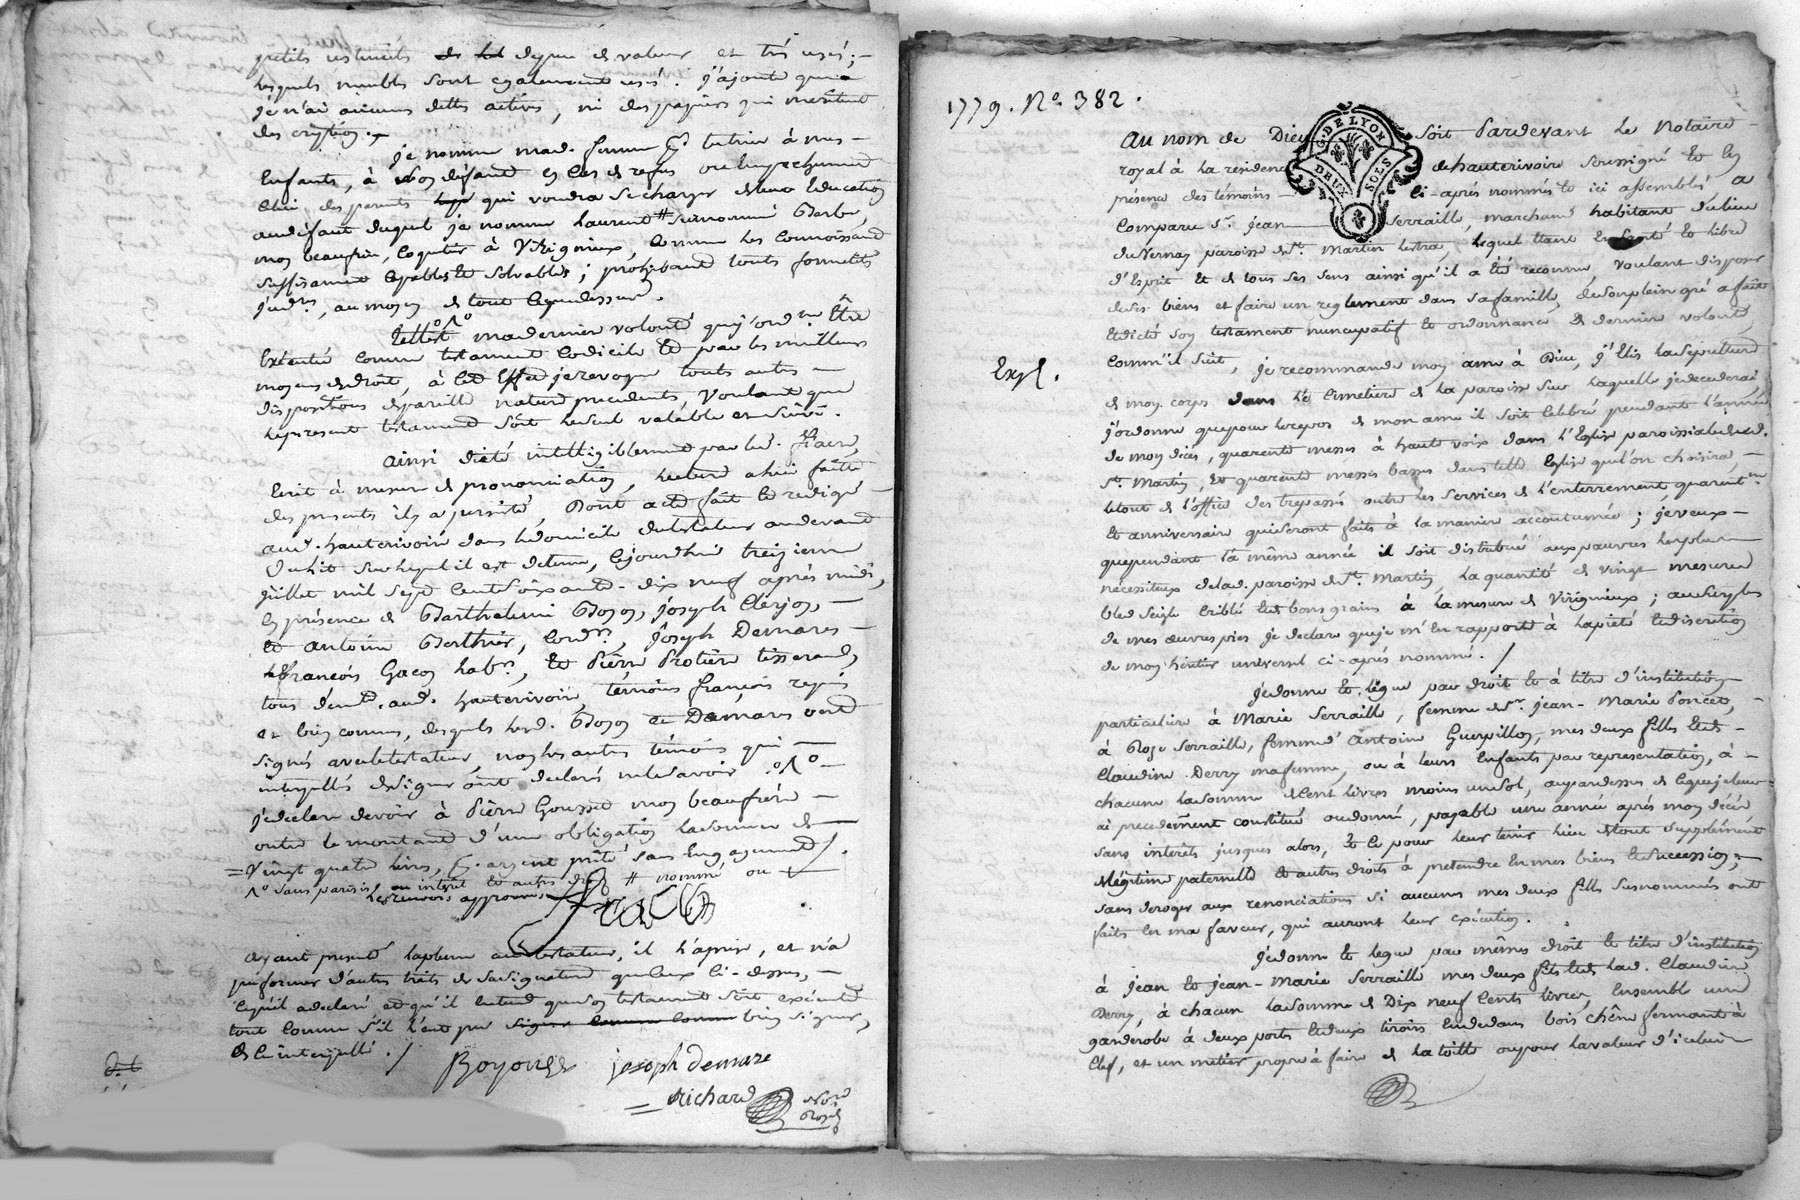 petits ustencils de peu de valeur et très usés;
lesquels meubles sont egalement usés. j'ajoute que
je n'ai aucunes dettes actives, ni des papiers qui meritent
description.
je nomme mad. femme tutrice à mes
Enfants, à son défaut
celui des parents qui voudra se charger de leur Education
audéfaut duquel je nomme laurent # surnommé Barbou,
mon beaufrère, coquetier à Virigneux, comme les connoissant
suffisament capables et solvables; prohibant toutes formalités
jud.res, au moyen de tout ce que dessus.
Telle est ma dernier volonté que j'ord.ne Être
Exécutée comme testament codicile et par les meilleurs
moyens de droit, à cet Effet je revoque toutes autres
dispositions de pareille nature precedentes, voulant que
le present testament soit le seul valable et suivi.
ainsi dicté intelligiblement par led.
Ecrit à mesure de prononciation, lecture a lui faitte
des presentes il y a persisté, Dont acte fait et redigé
aud. hauterivoire dans le domicile du testateur au devant
du lit sur lequel il est detenu, cejourd'hui treizieme
juillet mil sept cent soixante-dix neuf après midi,
En présence de Barthelemi Boyon, joseph Clerjon,
et antoine Berthier, cord.rs, joseph Demares
françois Gacon hab.t, et Pierre Protière tisserand,
tous dem.t aud. hauterivoire, témoins françois requis
et bien connus, desquels lesd. Boyon et Demares ont
signés avec le testateur, non les autres témoins qui
interpellés de signer ont déclarés ne le savoir
je declare devoir à Pierre Gousset mon beaufrère
outre le montant d'une obligation la somme de
Vingt quatre livres, argent prêté sans Engagement
sans parisis, ni intérêt et autres # nommé ou
les renvois approuvés
ayant presenté la plume au testateur, il l'a prise, et n'a
pu former d'autres traits de sa signature que ceux ci-dessus,
ce qu'il a declaré et qu'il entend que son testament soit exécuté
tout comme s'il l'eut pu bien signer,
de ce interpellé.
Boyon joseph demare
Richard
Not.re
Royal
1779. N.o 382.
au nom de Dieu soit Pardevant Le Notaire
royal à la residence de hauterivoire soussigné Et En
présence des témoins ci-après nommés Et ici assemblés a
Comparu s.r jean Serraille, marchand habitant du lieu
du Vernay paroisse de S.t Martin lestra, lequel Etant En Santé Et libre
d'Esprit Et de tous ses sens ainsi qu'il a été reconnu, voulant disposer
de ses biens et faire un reglement dans sa famille, de son plein gré a fait
Et dicté son testament nuncupatif Et ordonnance de derniere volonté,
comm'il suit, je recommande mon ame à Dieu, j'Elis la sépulture
Expé.
de mon corps dans le cimetière de la paroisse sur laquelle je decederai
j'ordonne que pour le repos de mon ame il soit celebré pendant l'année
de mon décès, quarante messes à haute voix dans l'Eglise paroissiale dud.
S.t Martin, Et quarante messes basses dans telle Eglise que l'on choisira
le tout de l'office des trepassés outre les services de l'enterrement, quarant.ne
Et anniversaire qui seront faits à la manière accoutumée; je veux
que pendant la même année il soit distribué aux pauvres les plus
nécessiteux de lad. paroisse de S.t Martin, la quantité de vingt mesures
bled seigle criblé Et bons grains à la mesure de Virigneux; au surplus
de mes œuvres pies je declare que je m'En rapporte à la piété Et discretion
de mon héritier universel ci-après nommé.
Je donne Et legue par droit Et à titre d'institution
particulière à Marie Serraille, femme de S.r jean-Marie Poncet,
à Roze Serraille, femme d'Antoine Guerpillon, mes deux filles Et de
Claudine Derry ma femme, ou à leurs Enfants par representation, à
chacune la somme de Cent livres moins un sol, au pardessus de ce que je leur
ai precedemment constitué ou donné, payable une année après mon décès
sans intérêts jusques alors, Et ce pour leur tenir lieu de tout supplément
de légitime paternelle Et autres droits à pretendre En mes biens Et succession,
sans deroger aux renonciations si aucunes mes deux filles susnommées ont
faites En ma faveur, qui auront leur exécution.
Je donne Et legue par mêmes droit Et titre d'institution
à jean Et jean-Marie Serraille mes deux fils Et de lad. Claudine
Derry, à chacun la somme de Dix neuf Cents livres, Ensemble une
garderobe à deux portes Et deux tiroirs Endedans bois chêne fermant à
clef, et un metier propre à faire de la toille ou pour la valeur d'icelui